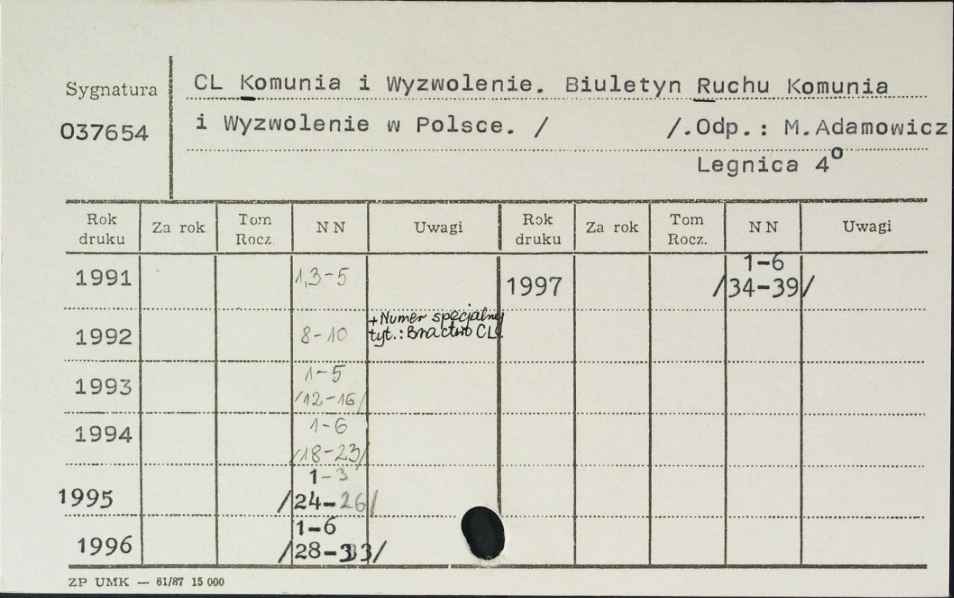 Sygnatura
037654
CL Komunia i Wyzwolenie. Biuletyn Ruchu Komunia
i Wyzwolenie w Polsce. / /.Odp.: M.Adamowicz
Legnica 4º
Rok druku Za rok Tom Rocz. NN Uwagi Rok druku Za rok Tom Rocz. NN Uwagi
1991 1,3-5 1997 1-6 /34-39/
1992 8-10 +Numer specjalny
tyt.: Bractwo CL.
1993 1-5
/12-16/
1994 1-6
/18-23/
1995 1-3
/24-26/
1996 1-6
/28-33/
ZP UMK — 61/87 15 000